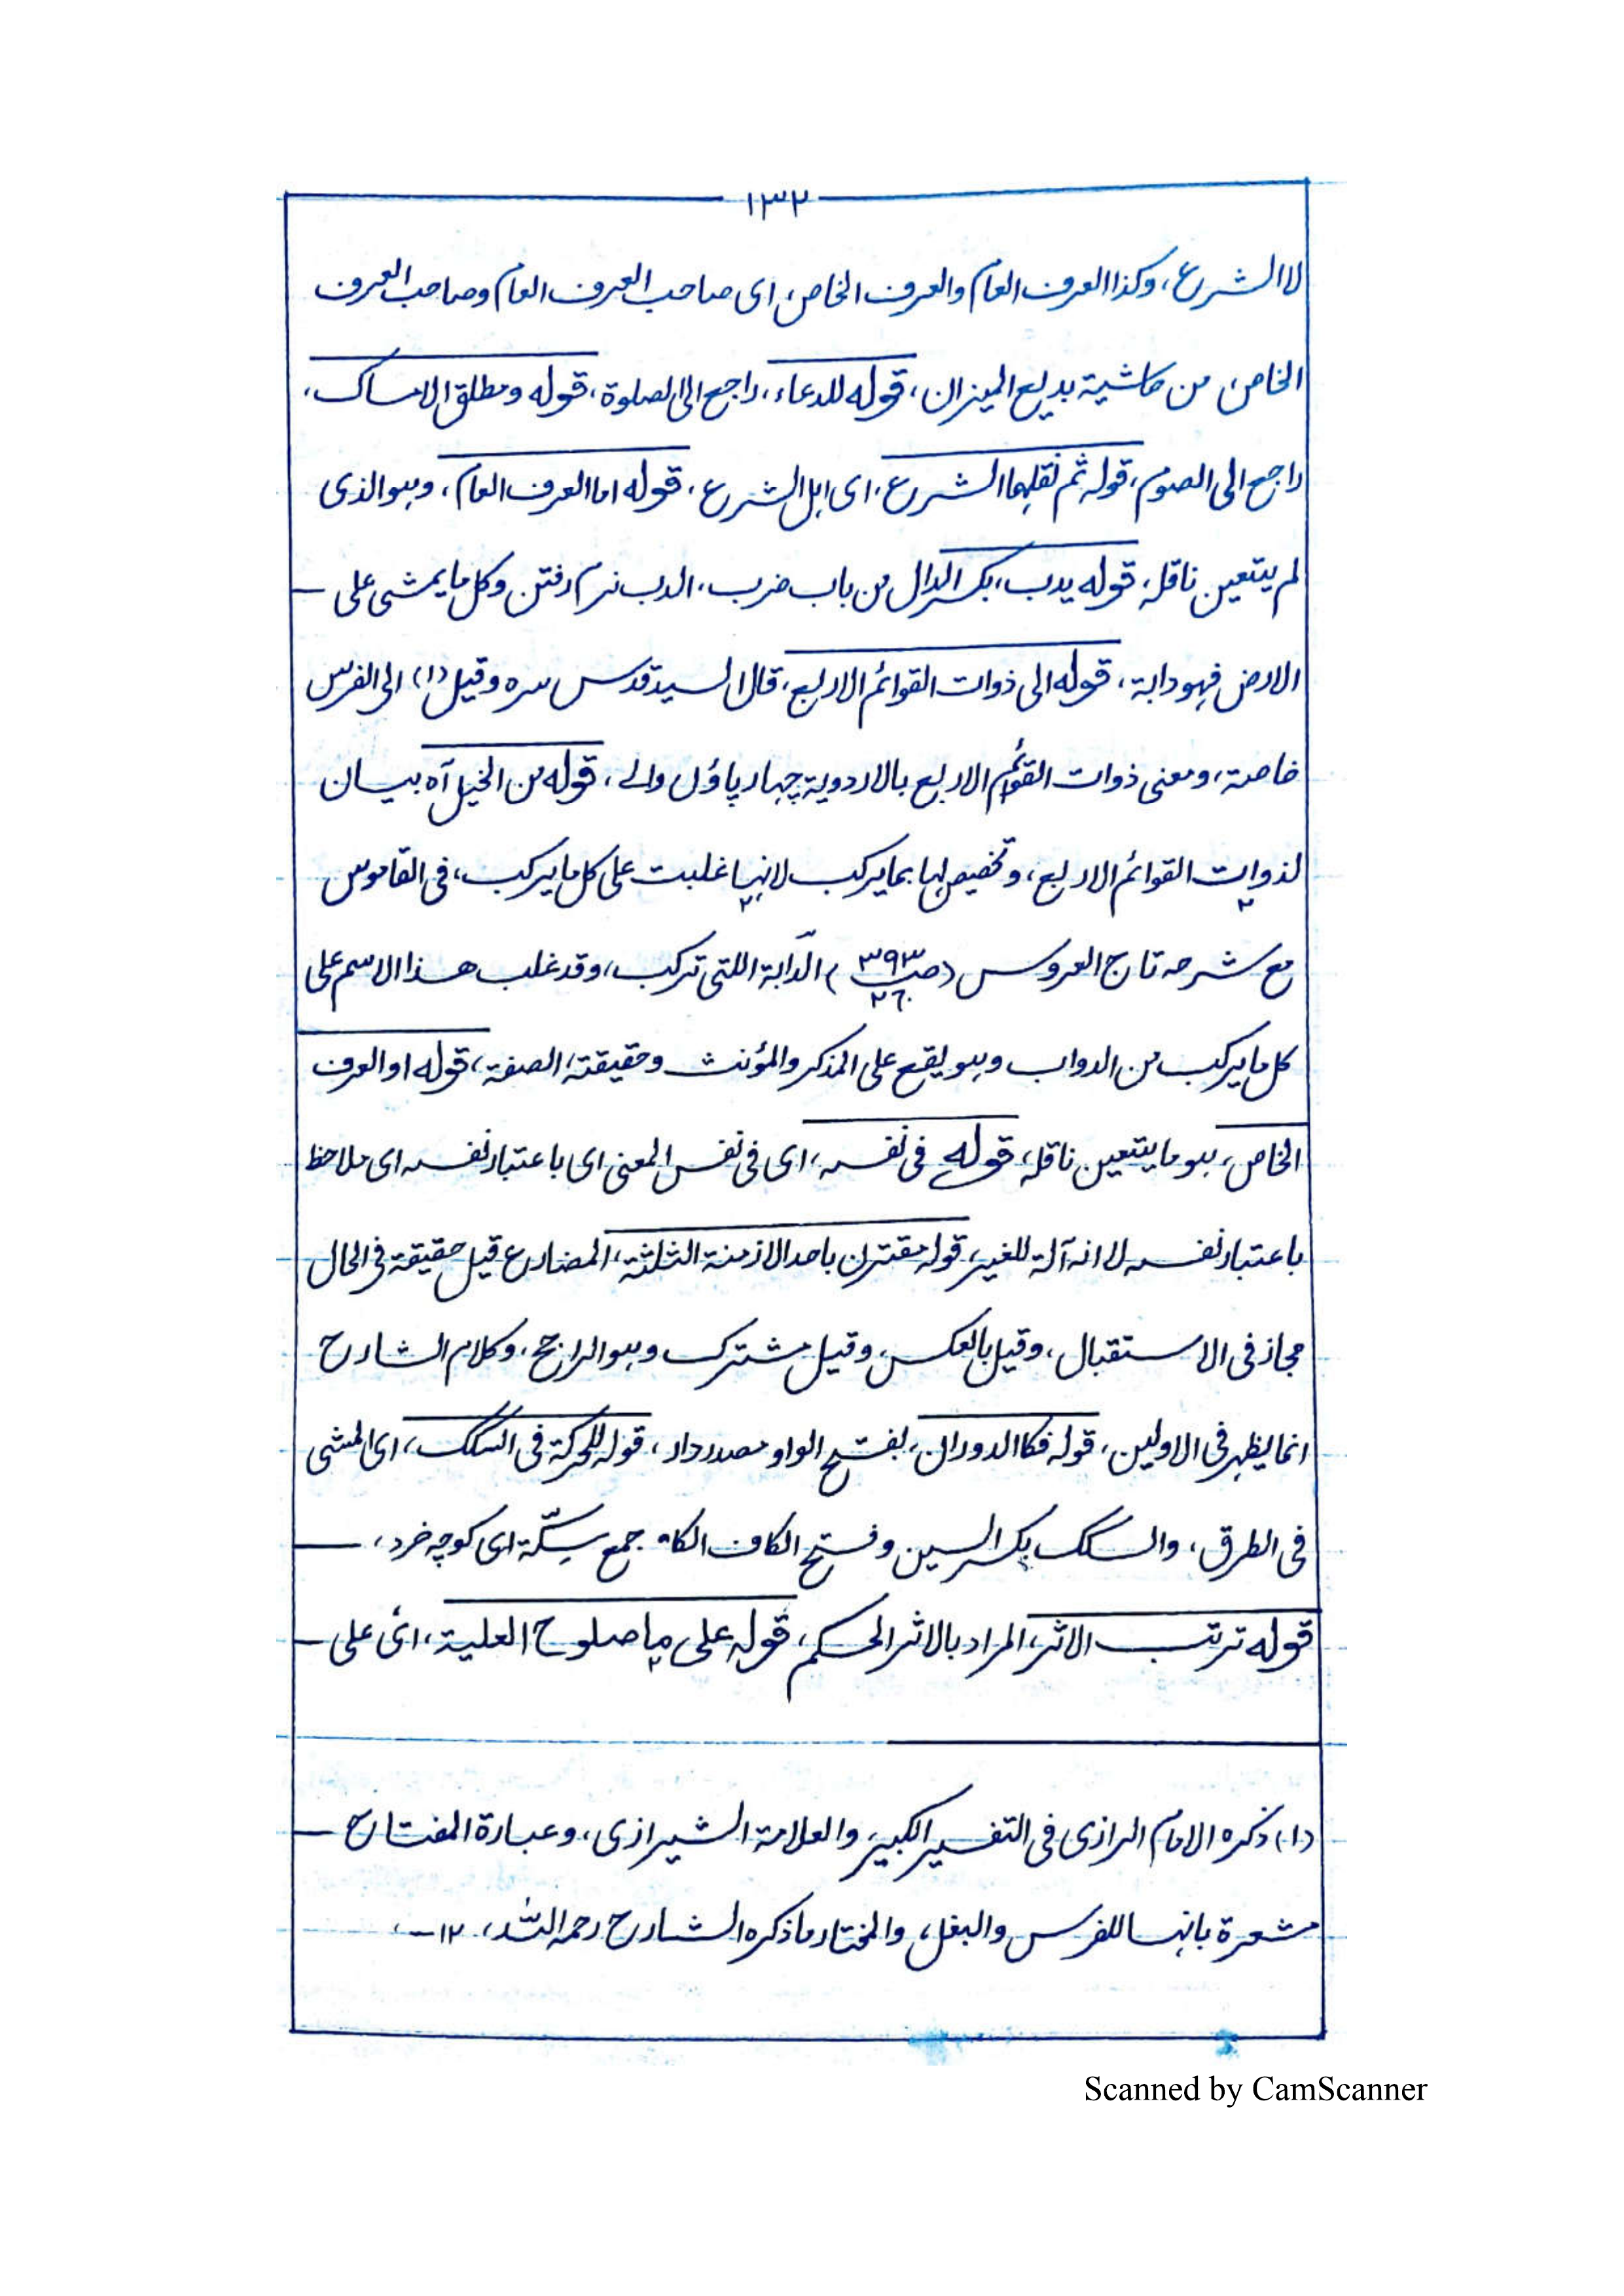 ١٣٢
لا الشرع، وكذا العرف العام والعرف الخاص، اى صاحب العرف العام وصاحب العرف
الخاص، من حاشية بديع الميزان، قوله للدعاء، راجع الى الصلوة، قوله ومطلق الامساك،
راجع الى الصوم، قوله ثم نقلها الشرع، اى اهل الشرع، قوله اما العرف العام، وهو الذى
لم يتعين ناقله، قوله يدب، بكسر الدال من باب ضرب، الدب نرم رفتن وكل ما يمشى على
الارض فهو دابة، قوله الى ذوات القوائم الاربع، قال السيد قدس سره وقيل (١) الى الفرس
خاصة، ومعنى ذوات القوائم الاربع بالاردوية چہار پاؤں والے، قوله من الخيل آه بيان
لذوات القوائم الاربع، وتخصيصها بما يركب لانها غلبت على كل ما يركب، فى القاموس
مع شرحه تاج العروس (صـ ٣٩٣ ٢٦٠) الدّابة اللتى تركب، وقد غلب هذا الاسم على
كل ما يركب من الدواب وهو يقع على المذكر والمؤنث وحقيقته الصفة، قوله او العرف
الخاص، هو ما يتعين ناقله، قوله فى نفسه، اى فى نفس المعنى اى باعتبار نفسه اى ملاحظ
باعتبار نفسه لا انه آلة للغير، قوله مقترن باحد الازمنة الثلثة، المضارع قيل حقيقة فى الحال
مجاز فى الاستقبال، وقيل بالعكس، وقيل مشترك وهو الراجح، وكلام الشارح
انما يظهر فى الاولين، قوله فكا الدوران، بفتح الواو مصدر دار، قوله للحركة فى السكك، اى المشى
فى الطرق، والسكك بكسر السين وفتح الكاف الكاف جمع سِكّة اى كوچہ خرد،
قوله ترتب الاثر، المراد بالاثر الحكم، قوله على ما صلوح العلية، اى على
(١) ذكره الامام الرازى فى التفسير الكبير، والعلامة الشيرازى، وعبارة المفتاح
مشعرة بانها للفرس والبغل، والمختار ما ذكره الشارح رحمه الله، ١٢-،
Scanned by CamScanner